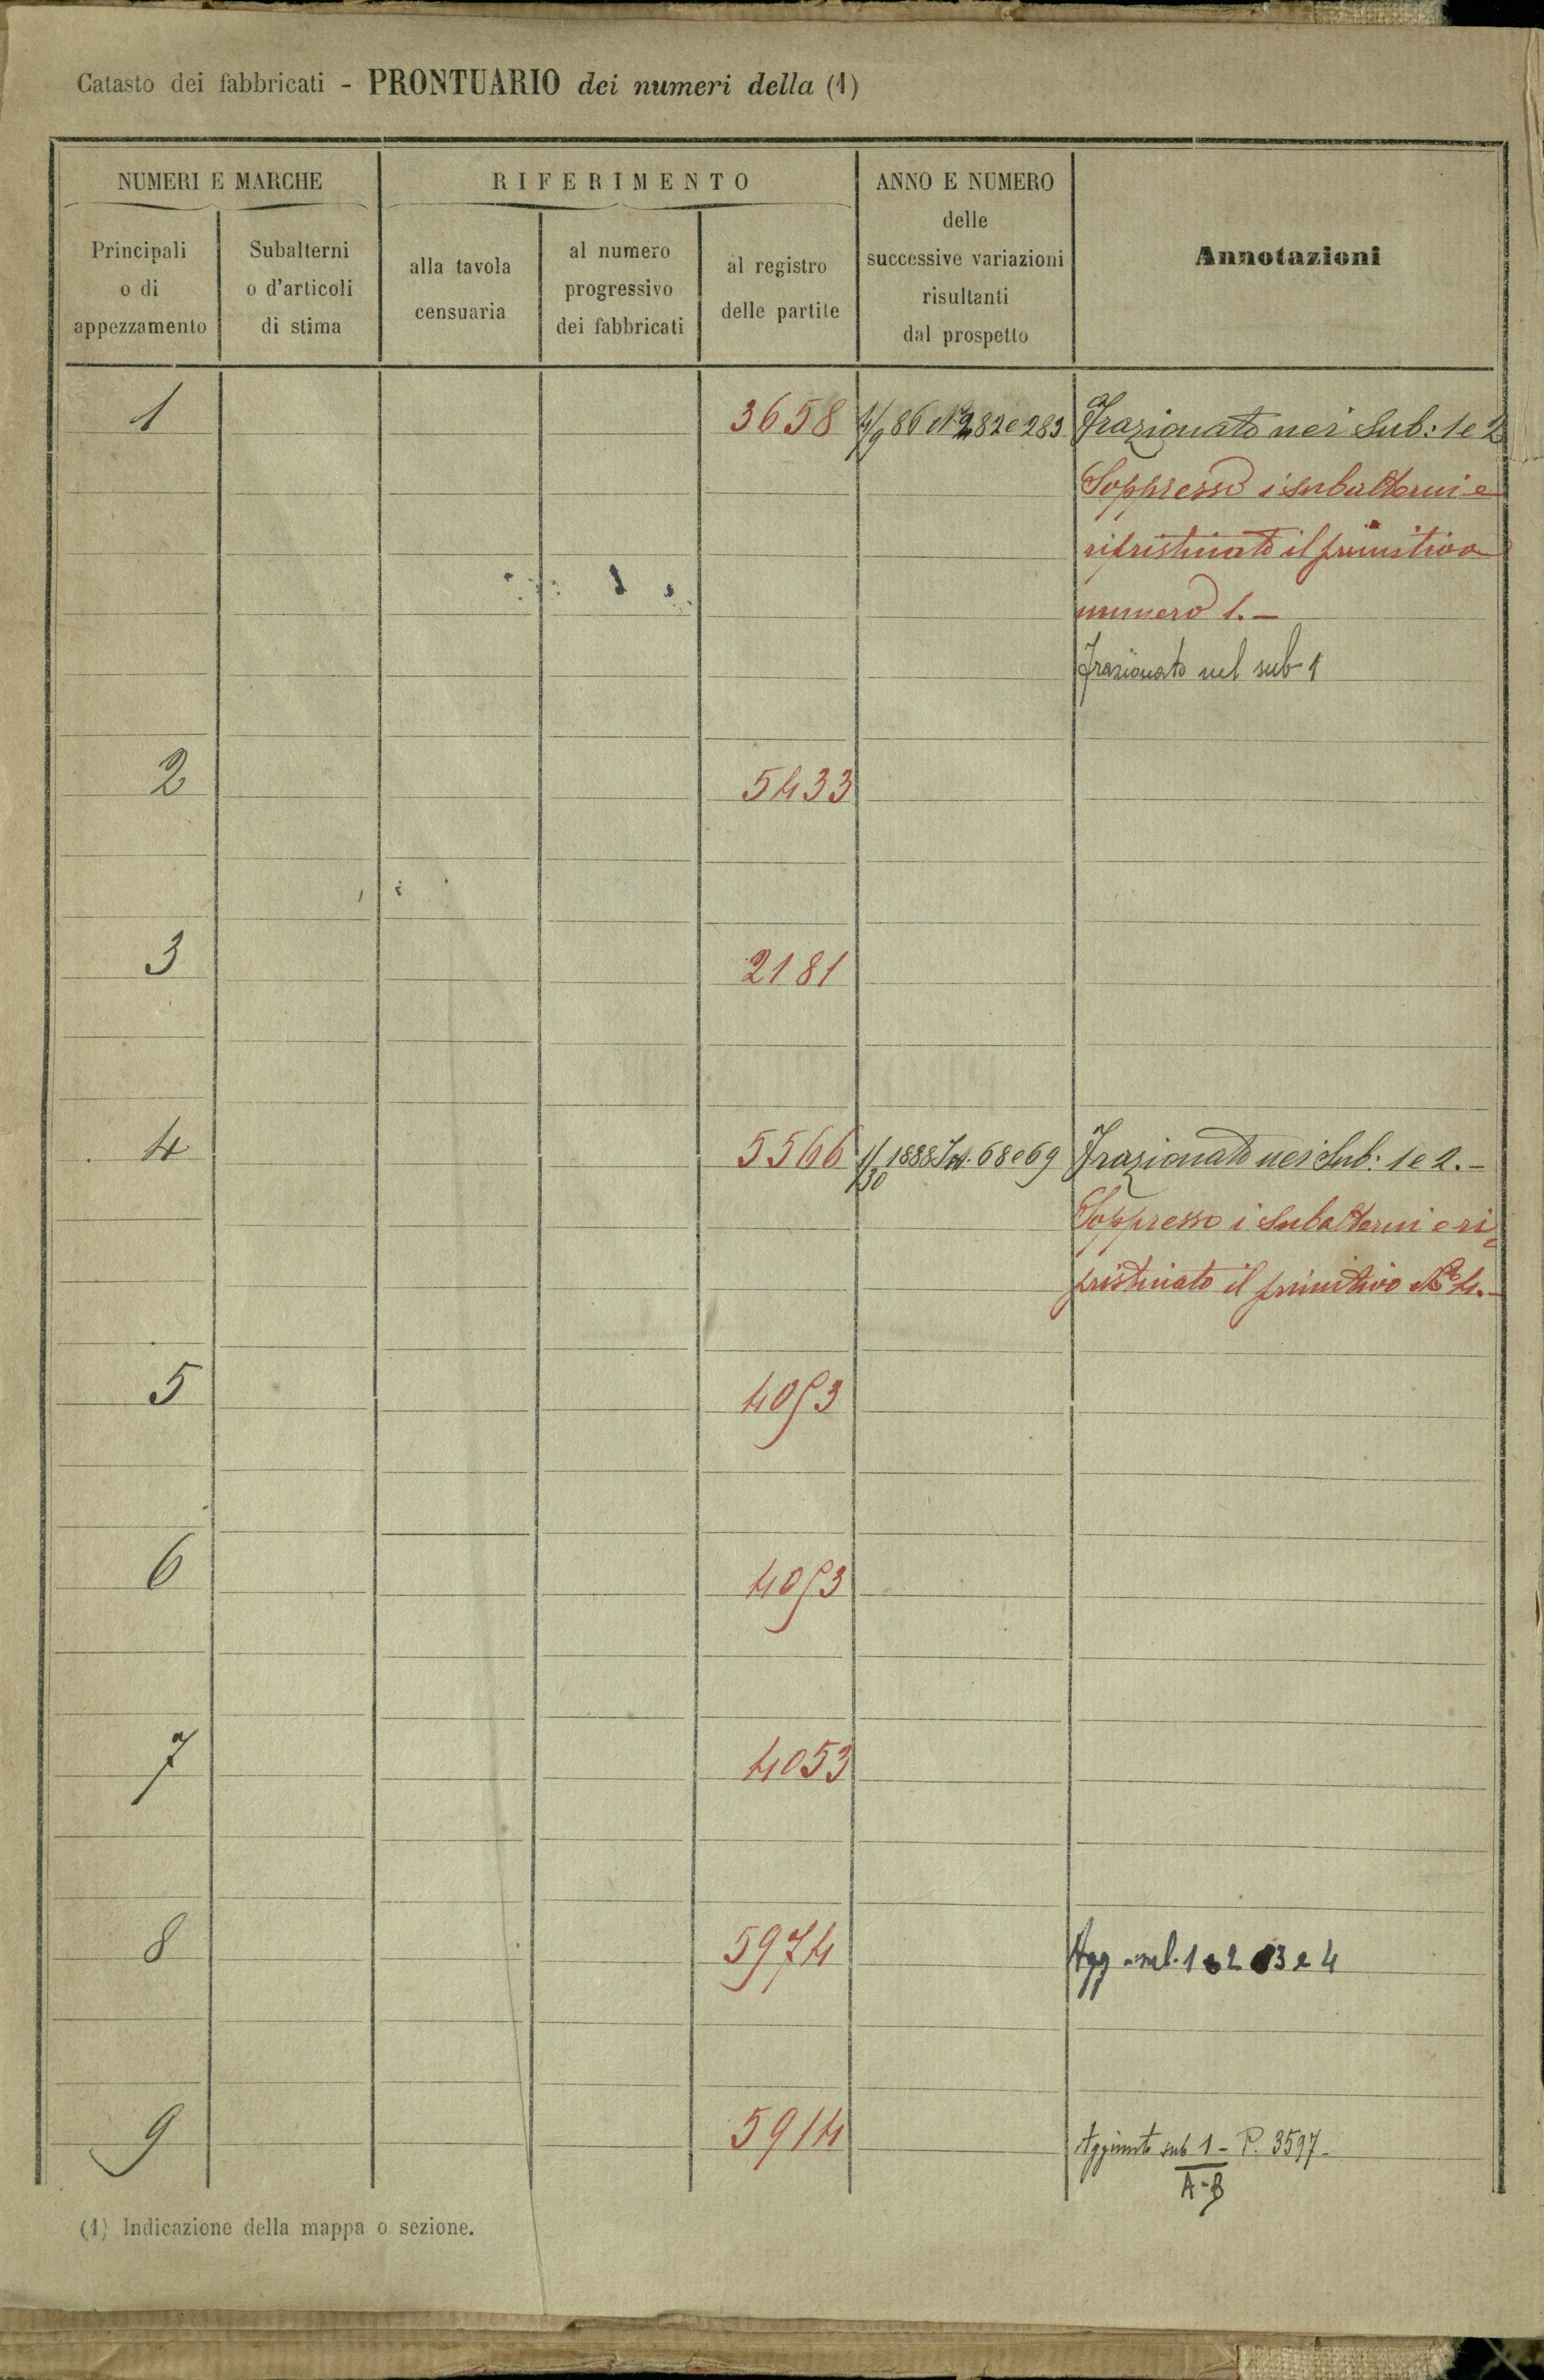 Catasto dei fabbricati - PRONTUARIO dei numeri della (1)
NUMERI E MARCHE
RIFERIMENTO
ANNO E NUMERO
delle
successive variazioni
risultanti
dal prospetto
Annotazioni
Principali
o di
appezzamento
Subalterni
o d'articoli
di stima
alla tavola
censuaria
al numero
progressivo
dei fabbricati
al registro
delle partite
1 3658 4/9 86 Nº 282 e 283 Frazionato nei Sub: 1 e 2
Soppresso i subalterni e
ripristinato il primitivo
numero 1. -
Frazionato nel sub 1
2 5433
3 2181
4 5566 1/30 1888 68 e 69 Frazionato nei Sub: 1 e 2. -
Soppresso i Subalterni e ri
pristinato il primitivo Nº 4. -
5 4053
6 4053
7 4053
8 5974 Agg 1 2 3 e 4
9 5914 Aggiunto sub 1 - P. 3597 -
A - B
(1) Indicazione della mappa o sezione.